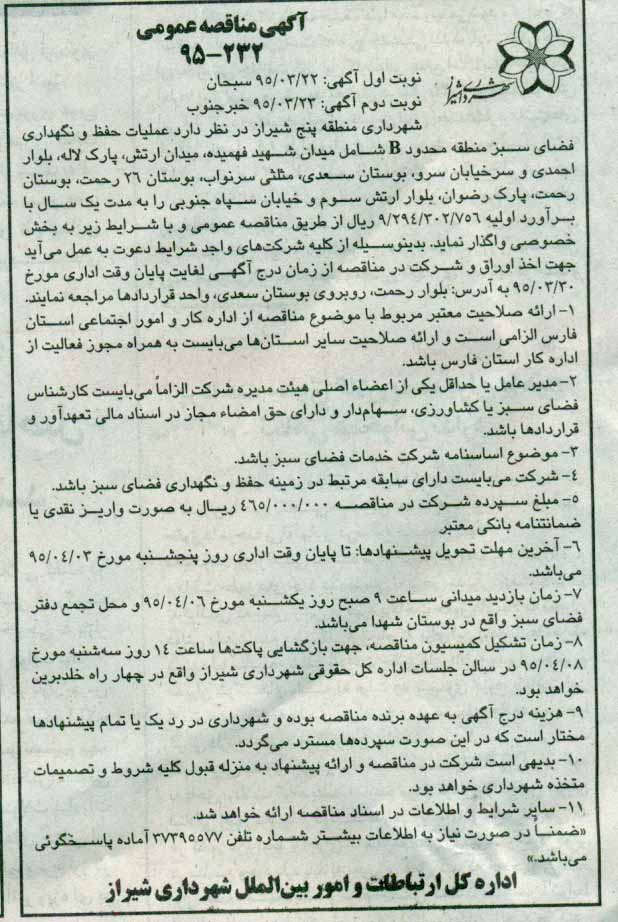 آگهی مناقصه عمومی
۹۵-۲۳۲
شهرداری شیراز
نوبت اول آگهی: ۹۵/۰۳/۲۲ سبحان
نوبت دوم آگهی: ۹۵/۰۳/۲۳ خبرجنوب
شهرداری منطقه پنج شیراز در نظر دارد عملیات حفظ و نگهداری
فضای سبز منطقه محدود B شامل میدان شهید فهمیده، میدان ارتش، پارک لاله، بلوار
احمدی و سرخیابان سرو، بوستان سعدی، مثلثی سرنواب، بوستان ۲۶ رحمت، بوستان
رحمت، پارک رضوان، بلوار ارتش سوم و خیابان سپاه جنوبی را به مدت یک سال با
برآورد اولیه ۹/۲۹۴/۳۰۲/۷۵۶ ریال از طریق مناقصه عمومی و با شرایط زیر به بخش
خصوصی واگذار نماید. بدینوسیله از کلیه شرکت‌های واجد شرایط دعوت به عمل می‌آید
جهت اخذ اوراق و شرکت در مناقصه از زمان درج آگهی لغایت پایان وقت اداری مورخ
۹۵/۰۳/۳۰ به آدرس: بلوار رحمت، روبروی بوستان سعدی، واحد قراردادها مراجعه نمایند.
۱- ارائه صلاحیت معتبر مربوط با موضوع مناقصه از اداره کار و امور اجتماعی استان
فارس الزامی است و ارائه صلاحیت سایر استان‌ها می‌بایست به همراه مجوز فعالیت از
اداره کار استان فارس باشد.
۲- مدیر عامل یا حداقل یکی از اعضاء اصلی هیئت مدیره شرکت الزاماً می‌بایست کارشناس
فضای سبز یا کشاورزی، سهام‌دار و دارای حق امضاء مجاز در اسناد مالی تعهدآور و
قراردادها باشد.
۳- موضوع اساسنامه شرکت خدمات فضای سبز باشد.
۴- شرکت می‌بایست دارای سابقه مرتبط در زمینه حفظ و نگهداری فضای سبز باشد.
۵- مبلغ سپرده شرکت در مناقصه ۴۶۵/۰۰۰/۰۰۰ ریال به صورت واریز نقدی یا
ضمانتنامه بانکی معتبر
۶- آخرین مهلت تحویل پیشنهادها: تا پایان وقت اداری روز پنجشنبه مورخ ۹۵/۰۴/۰۳
می‌باشد.
۷- زمان بازدید میدانی ساعت ۹ صبح روز یکشنبه مورخ ۹۵/۰۴/۰۶ و محل تجمع دفتر
فضای سبز واقع در بوستان شهدا می‌باشد.
۸- زمان تشکیل کمیسیون مناقصه، جهت بازگشایی پاکت‌ها ساعت ۱۴ روز سه‌شنبه مورخ
۹۵/۰۴/۰۸ در سالن جلسات اداره کل حقوقی شهرداری شیراز واقع در چهار راه خلدبرین
خواهد بود.
۹- هزینه درج آگهی به عهده برنده مناقصه بوده و شهرداری در رد یک یا تمام پیشنهادها
مختار است که در این صورت سپرده‌ها مسترد می‌گردد.
۱۰- بدیهی است شرکت در مناقصه و ارائه پیشنهاد به منزله قبول کلیه شروط و تصمیمات
متخذه شهرداری خواهد بود.
۱۱- سایر شرایط و اطلاعات در اسناد مناقصه ارائه خواهد شد.
«ضمناً در صورت نیاز به اطلاعات بیشتر شماره تلفن ۳۷۳۹۵۵۷۷ آماده پاسخگوئی
می‌باشد.»
اداره کل ارتباطات و امور بین‌الملل شهرداری شیراز